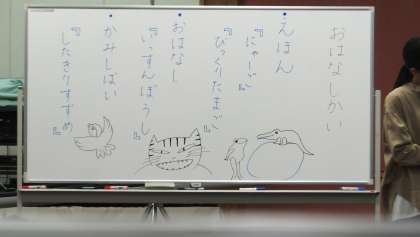 おはなしかい
えほん
『にゃーご』
『びっくりたまご』
おはなし
『いっすんぼうし』
かみしばい
『したきりすずめ』